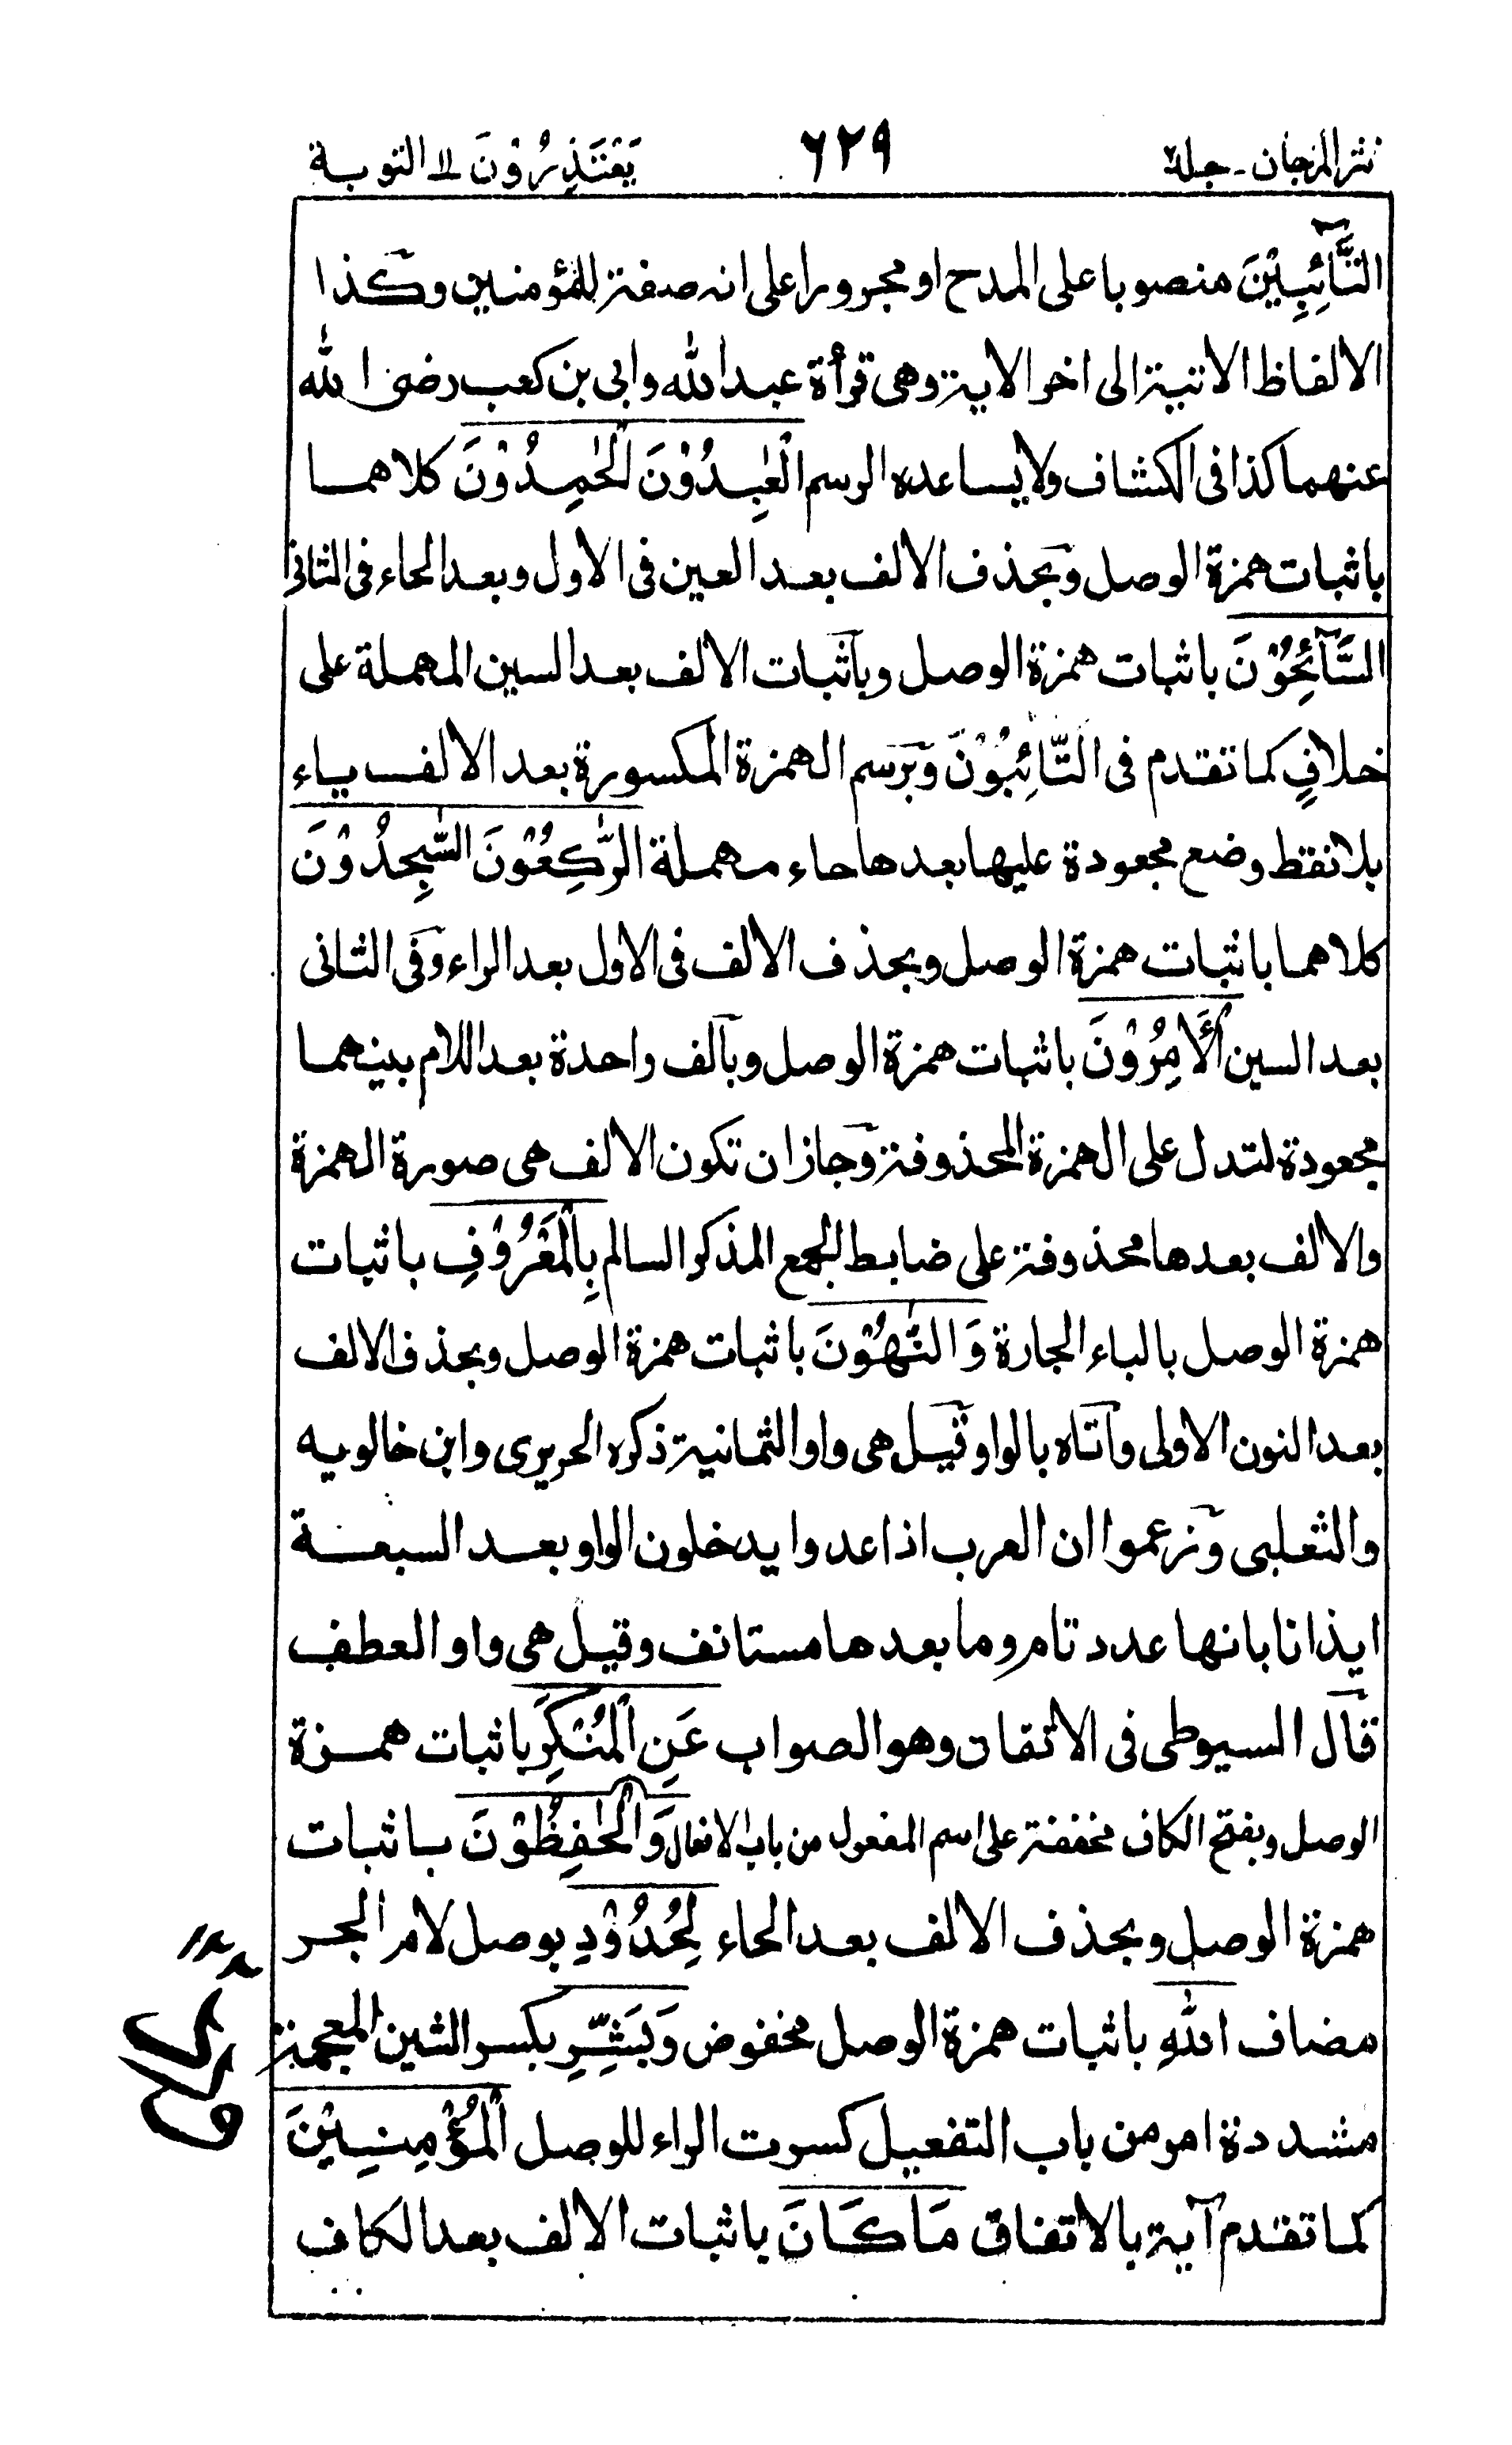 نثر المرجان - جلد٢ ٦٢٩ يَعْتَذِرُوْنَ ١١ التوبة
التَّآئِبِيْنَ منصوبا على المدح او مجرورا على انه صفة للمؤمنين وكذا
الالفاظ الاتية الى اخر الاية وهى قرأة عبد الله وابى بن كعب رضى الله
عنهما كذا فى الكشاف ولا يساعده الرسم الْعٰبِدُوْنَ الْحٰمِدُوْنَ كلاهما
باثبات همزة الوصل وبحذف الالف بعد العين فى الاول وبعد الحاء فى الثانى
السَّآئِحُوْنَ باثبات همزة الوصل وباثبات الالف بعد السين المهملة على
خلافٍ كما تقدم فى التَّائِبُوْنَ وبرسم الهمزة المكسورة بعد الالف ياء
بلا نقط وضع مجعودة عليها بعدها حاء مهملة الرّٰكِعُوْنَ السّٰجِدُوْنَ
كلاهما باثبات همزة الوصل وبحذف الالف فى الاول بعد الراء وفى الثانى
بعد السين الْأٰمِرُوْنَ باثبات همزة الوصل وبالف واحدة بعد اللام بينهما
مجعودة لتدل على الهمزة المحذوفة وجاز ان تكون الالف هى صورة الهمزة
والالف بعدها محذوفة على ضابط الجمع المذكر السالم بِالْمَعْرُوْفِ باثبات
همزة الوصل بالباء الجارة وَ النّٰهُوْنَ باثبات همزة الوصل وبحذف الالف
بعد النون الاولى واتاه بالواو قيل هى واو الثمانية ذكره الحريرى وابن خالويه
والثعلبى وزعموا ان العرب اذا عدوا يدخلون الواو بعد السبعة
ايذانا بانها عدد تام وما بعدها مستانف وقيل هى واو العطف
قال السيوطى فى الاتقان وهو الصواب عَنِ الْمُنْكَرِ باثبات همزة
الوصل وبفتح الكاف مخففة على اسم المفعول من باب الافعال وَالْحٰفِظُوْنَ باثبات
همزة الوصل وبحذف الالف بعد الحاء لِحُدُوْدِ بوصل لام الجر
مضاف اللهِ باثبات همزة الوصل مخفوض وَبَشِّرِ بكسر الشين المعجمة
مشددة امر من باب التفعيل كسرت الراء للوصل الْمُؤْمِنِيْنَ
كما تقدم آية بالاتفاق مَا كَانَ باثبات الالف بعد الكاف